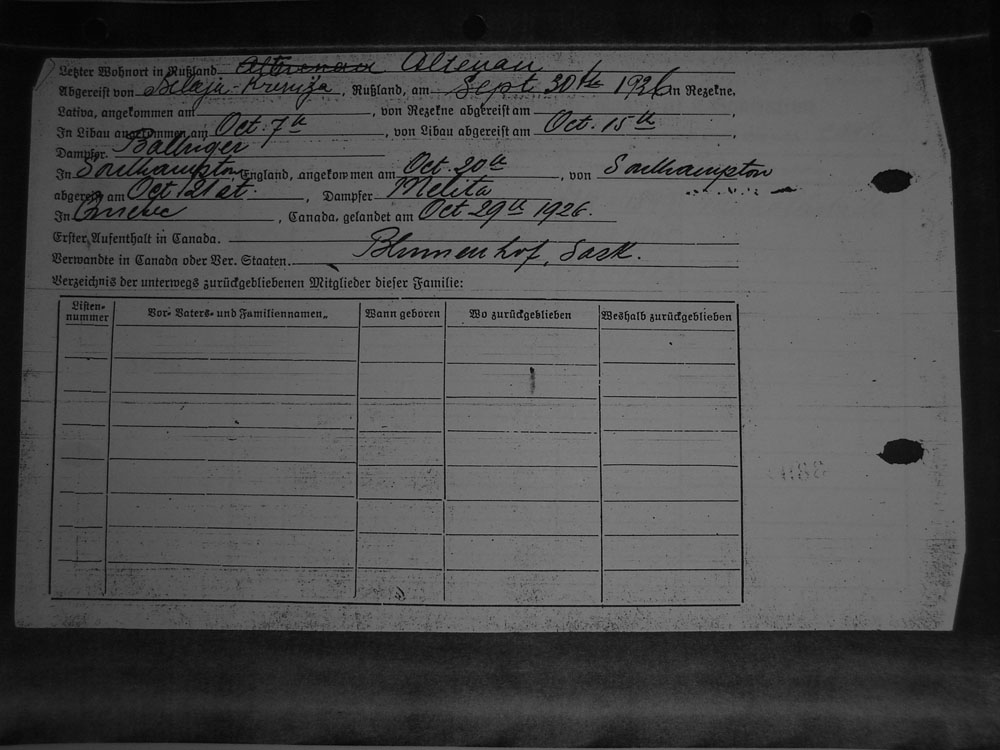 Letzter Wohnort in Rußland Altenau
Abgereist von Belaja-Kreniza, Rußland, am Sept 30th 1926 In Rezekne,
Lativa, angekommen am , von Rezekne abgereist am ,
In Libau angekommen am Oct. 7th , von Libau abgereist am Oct. 15th ,
Dampfer. Baltriger
In Southampton, England, angekommen am Oct. 20th , von Southampton
abgereist am Oct 21st. , Dampfer Melita
In Quebec , Canada, gelandet am Oct 29th 1926.
Erster Aufenthalt in Canada.
Verwandte in Canada oder Ver. Staaten. Blumenhof, Sask.
Verzeichnis der unterwegs zurückgebliebenen Mitglieder dieser Familie:
Listen-nummer Vor- Vaters- und Familiennamen. Wann geboren Wo zurückgeblieben Weshalb zurückgeblieben